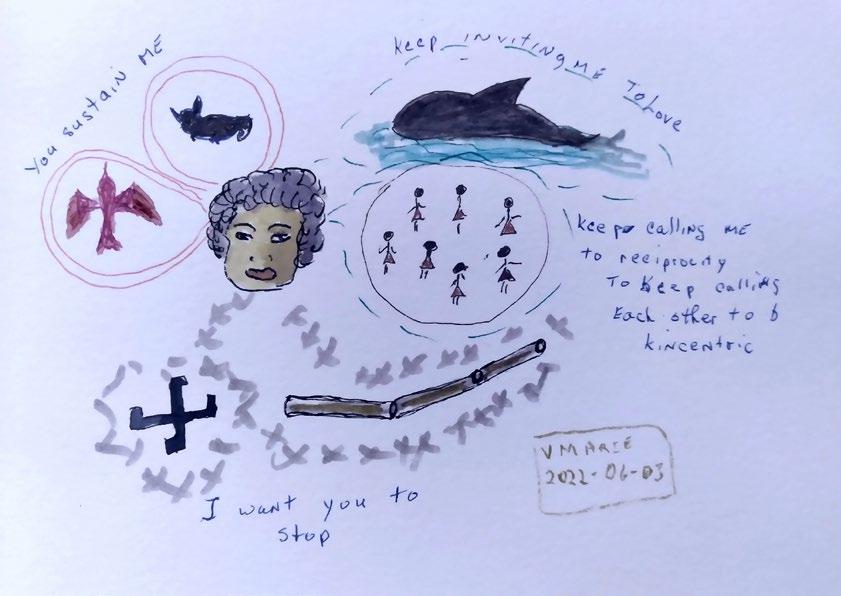 You sustain ME
Keep inviting ME To Love
Keep calling ME
to reciprocity
To keep calling
Each other to b
kincentric
I want you to
stop
VMARIE
2022-06-03